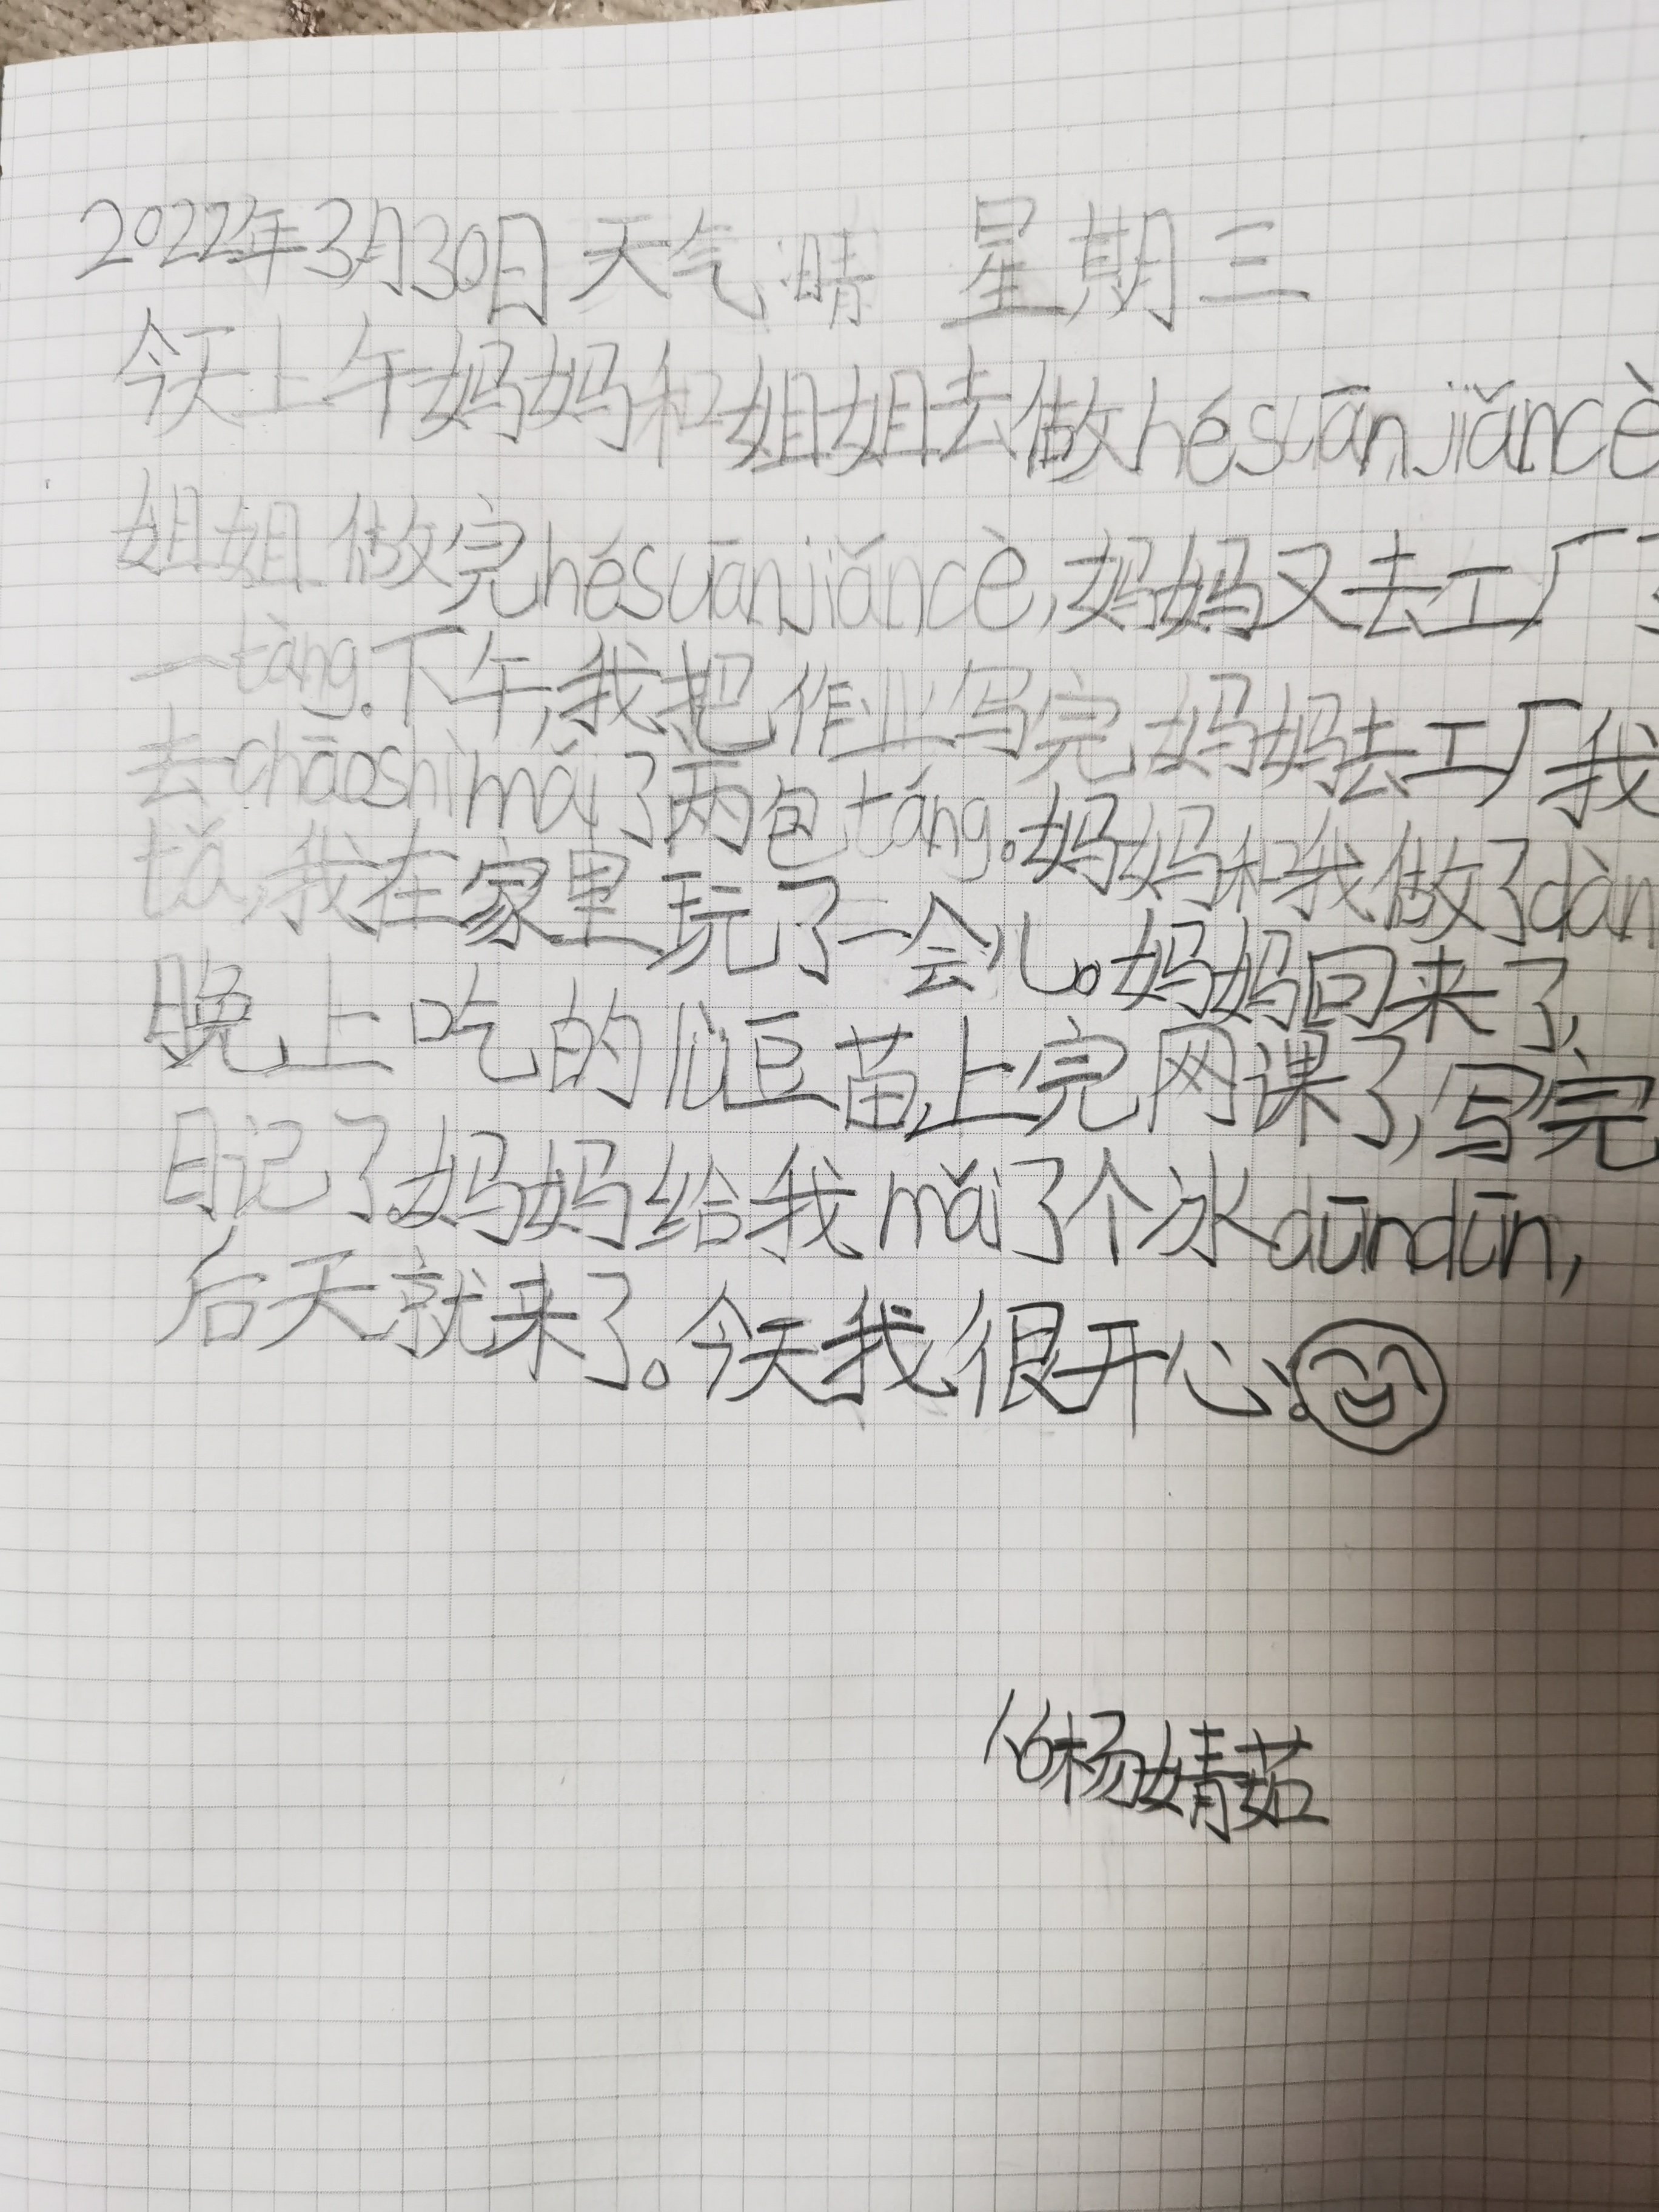 2022年3月30日 天气 晴 星期三
今天上午妈妈和姐姐去做hésuānjiǎncè
姐姐做完hésuānjiǎncè,妈妈又去工厂
一tàng.下午,我把作业写完,妈妈去工厂我
去chāoshìmǎi了两包táng。妈妈和我做了dàn
tǎ,我在家里玩了一会儿。妈妈回来了,
晚上吃的lǜ豆苗,上完网课了,写完
日记了.妈妈给我mǎi了个冰dūndūn,
后天就来了。今天我很开心。
杨婧茹